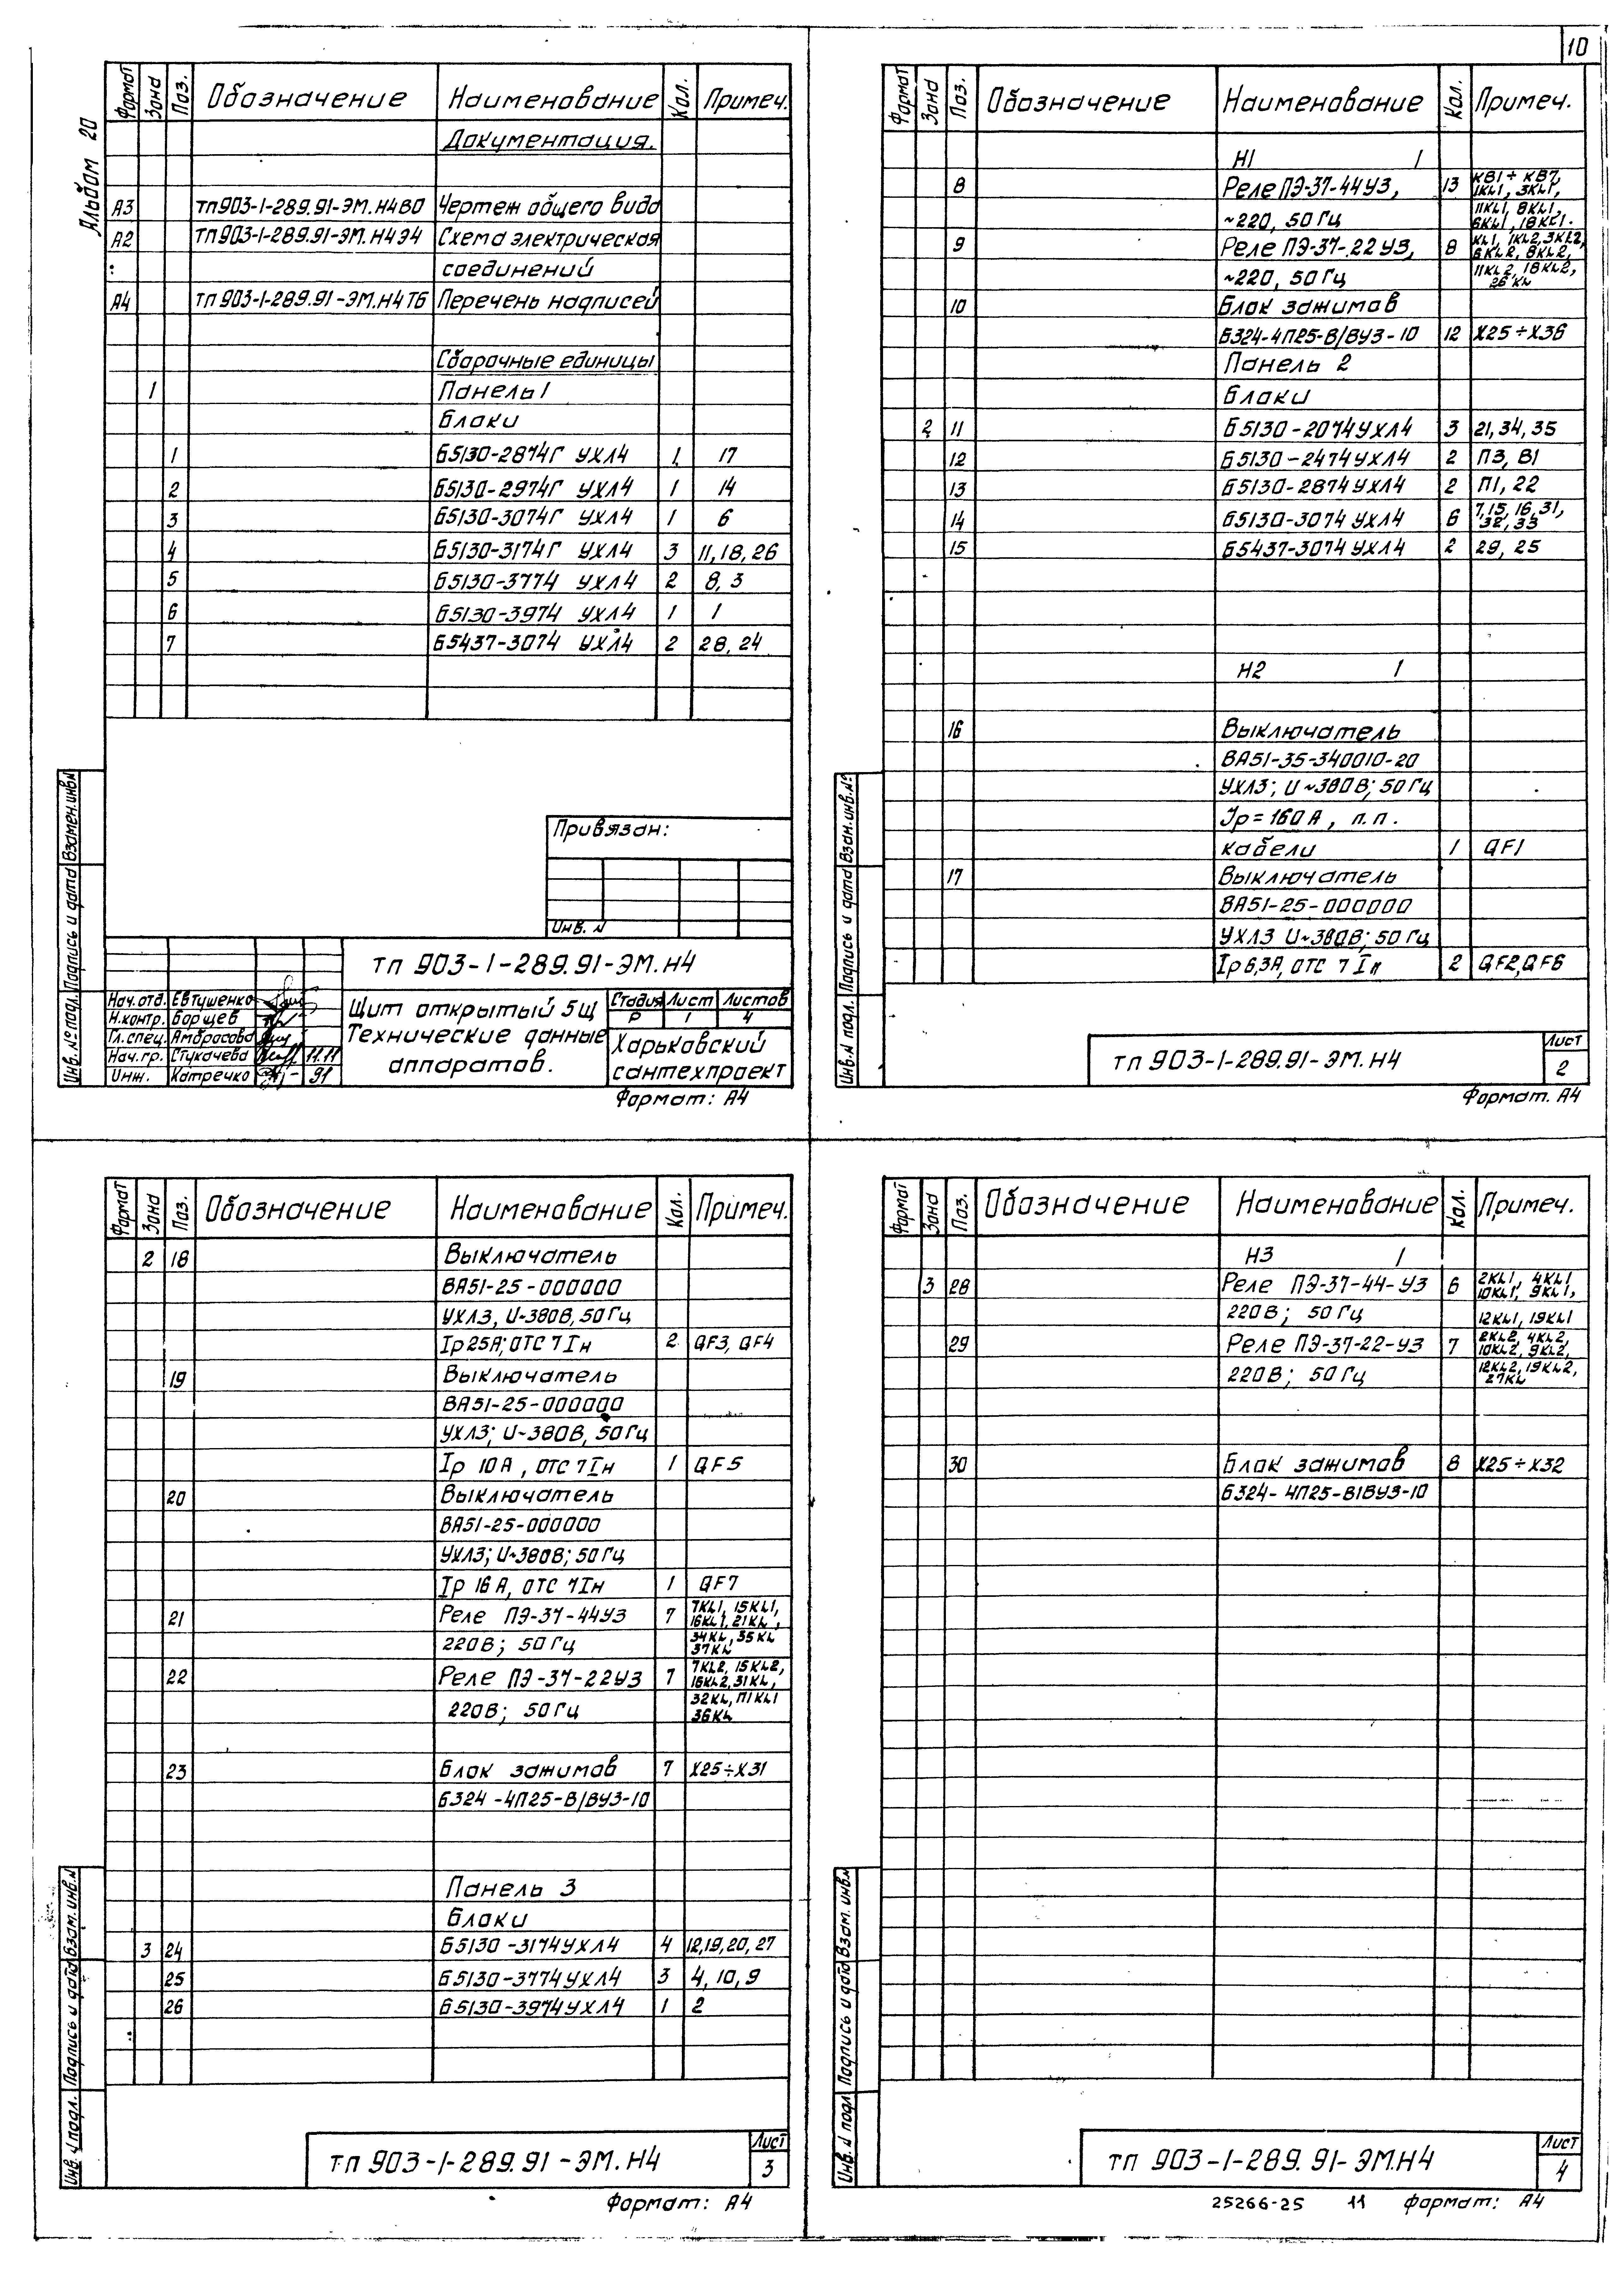 10
Альбом 20
Формат Зона Поз. Обозначение Наименование Кол. Примеч.
Документация.
А3 тп903-1-289.91-ЭМ.Н4В0 Чертеж общего вида
А2 тп903-1-289.91-ЭМ.Н4Э4 Схема электрическая
соединений
А4 тп903-1-289.91-ЭМ.Н4Т6 Перечень надписей
Сборочные единицы
1 Панель 1
Блоки
1 Б5130-2874Г УХЛ4 1 17
2 Б5130-2974Г УХЛ4 1 14
3 Б5130-3074Г УХЛ4 1 6
4 Б5130-3174Г УХЛ4 3 11, 18, 26
5 Б5130-3774 УХЛ4 2 8, 3
6 Б5130-3974 УХЛ4 1 1
7 Б5437-3074 УХЛ4 2 28, 24
Привязан:
Инв. N
тп 903-1-289.91-ЭМ.Н4
Нач.отд. Евтушенко
Н.контр. Борщев
Гл.спец. Амбросова
Нач.гр. Стукачева 11.11
Инж. Катречко 91
Щит открытый 5щ
Технические данные
аппаратов.
Стадия Лист Листов
Р 1 4
Харьковский
сантехпроект
Инв.№ подл. Подпись и дата Взамен.инв.N
Формат: А4
Формат Зона Поз. Обозначение Наименование Кол. Примеч.
Н1 1
8 Реле ПЭ-37-44У3, 13 КВ1÷КВ7,
1KL1, 3KL1,
~220, 50 Гц 11KL1, 8KL1,
6KL1, 18KL1.
9 Реле ПЭ-37-22У3, 8 KL1, 1KL2, 3KL2,
6KL2, 8KL2,
~220, 50 Гц 11KL2, 18KL2,
26KL
10 Блок зажимов
Б324-4П25-В/ВУ3-10 12 Х25÷Х36
Панель 2
Блоки
2 11 Б5130-2074УХЛ4 3 21, 34, 35
12 Б5130-2474УХЛ4 2 П3, В1
13 Б5130-2874УХЛ4 2 П1, 22
14 Б5130-3074УХЛ4 6 7, 15, 16, 31,
32, 33
15 Б5437-3074УХЛ4 2 29, 25
Н2 1
16 Выключатель
ВА51-35-340010-20
УХЛ3; U~380В; 50 Гц
Iр=160А, п.п.
кабели 1 QF1
17 Выключатель
ВА51-25-000000
УХЛ3 U~380В; 50 Гц
Iр 6,3А, ОТС 7 Iн 2 QF2, QF6
Инв.N подл. Подпись и дата Взам.инв.№
тп 903-1-289.91-ЭМ.Н4
Лист
2
Формат. А4
Формат Зона Поз. Обозначение Наименование Кол. Примеч.
2 18 Выключатель
ВА51-25-000000
УХЛ3, U~380В, 50 Гц
Iр 25А; ОТС 7 Iн 2 QF3, QF4
19 Выключатель
ВА51-25-000000
УХЛ3; U~380В, 50 Гц
Iр 10А, ОТС 7 Iн 1 QF5
20 Выключатель
ВА51-25-000000
УХЛ3; U~380В; 50 Гц
Iр 16А, ОТС 7Iн 1 QF7
21 Реле ПЭ-37-44У3 7 7KL1, 15KL1,
16KL1, 21KL,
220В; 50 Гц 34KL, 35KL
37KL
22 Реле ПЭ-37-22У3 7 7KL2, 15KL2,
16KL2, 31KL,
220В; 50 Гц 32KL, П1KL1
36KL
23 Блок зажимов 7 Х25÷Х31
Б324-4П25-В/ВУ3-10
Панель 3
Блоки
3 24 Б5130-3174УХЛ4 4 12, 19, 20, 27
25 Б5130-3774УХЛ4 3 4, 10, 9
26 Б5130-3974УХЛ4 1 2
Инв. N подл. Подпись и дата Взам. инв.N
тп 903-1-289.91-ЭМ.Н4
Лист
3
Формат: А4
Формат Зона Поз. Обозначение Наименование Кол. Примеч.
Н3 1
3 28 Реле ПЭ-37-44-У3 6 2KL1, 4KL1
10KL1, 9KL1,
220В; 50 Гц 12KL1, 19KL1
29 Реле ПЭ-37-22-У3 7 2KL2, 4KL2,
10KL2, 9KL2,
220В; 50 Гц 12KL2, 19KL2,
27KL
30 Блок зажимов 8 Х25÷Х32
Б324-4П25-В1ВУ3-10
Инв. N подл Подпись и дата Взам. инв.N
тп 903-1-289.91-ЭМ.Н4
Лист
4
25266-25 11 Формат: А4